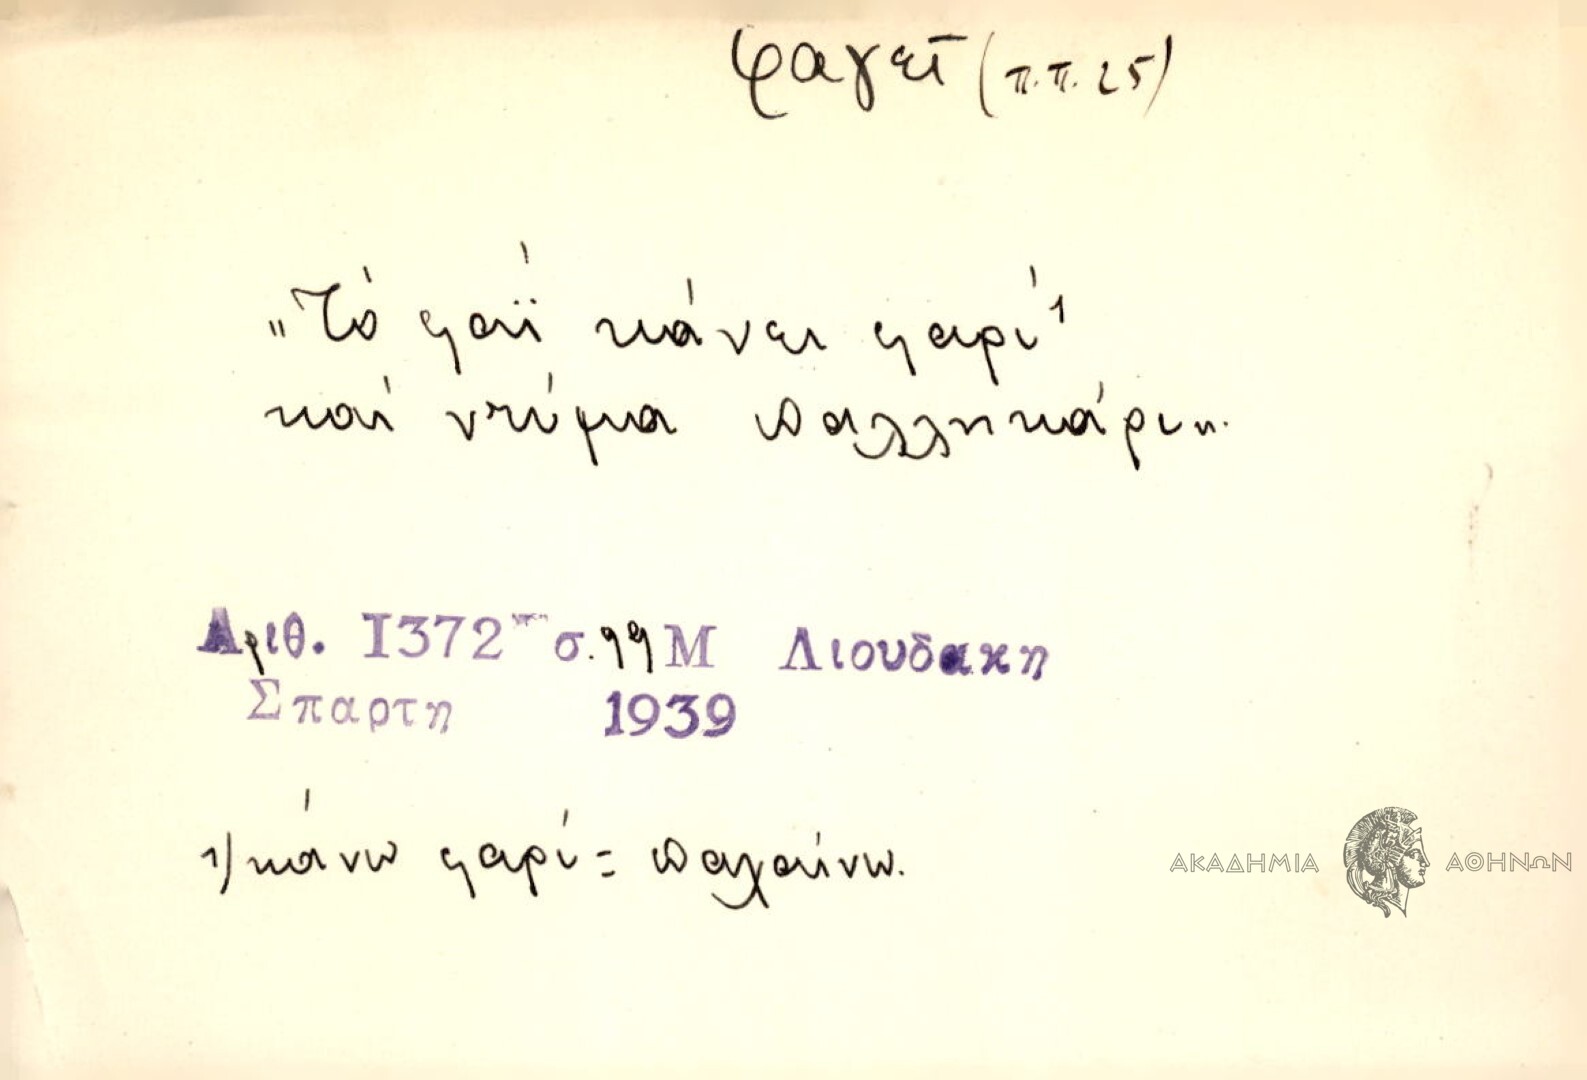 φαγεῖ (π.π. 25)
„Τό φαΐ κάνει φαρί¹
καί ντύμα παλληκάρι".
Αριθ. 1372 σ. 99 Μ Λιουδακη
Σπαρτη 1939
1) κάνω φαρί = παχαίνω.
ΑΚΑΔΗΜΙΑ ΑΘΗΝΩΝ